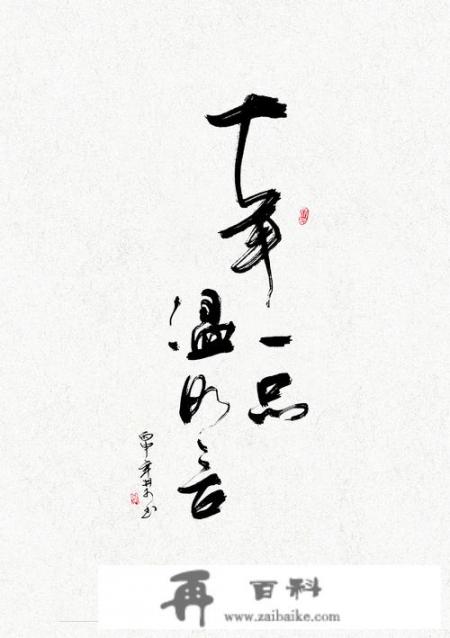 十年
一品
温如言
再百科
www.zaibaike.com